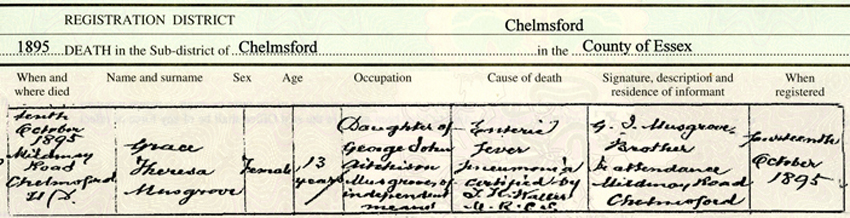 REGISTRATION DISTRICT Chelmsford
1895 DEATH in the Sub-district of Chelmsford in the County of Essex
When and where died
Name and surname
Sex
Age
Occupation
Cause of death
Signature, description and residence of informant
When registered
Tenth
October
1895
Mildmay
Road
Chelmsford
U D.
Grace
Theresa
Musgrove
Female
13
years
Daughter of
George John
Aitchison
Musgrove, of
independent
means
Enteric
Fever
Pneumonia
Certified by
M.R.C.S.
G. J. Musgrove
Brother
In attendance
Mildmay Road
Chelmsford
Fourteenth
October
1895